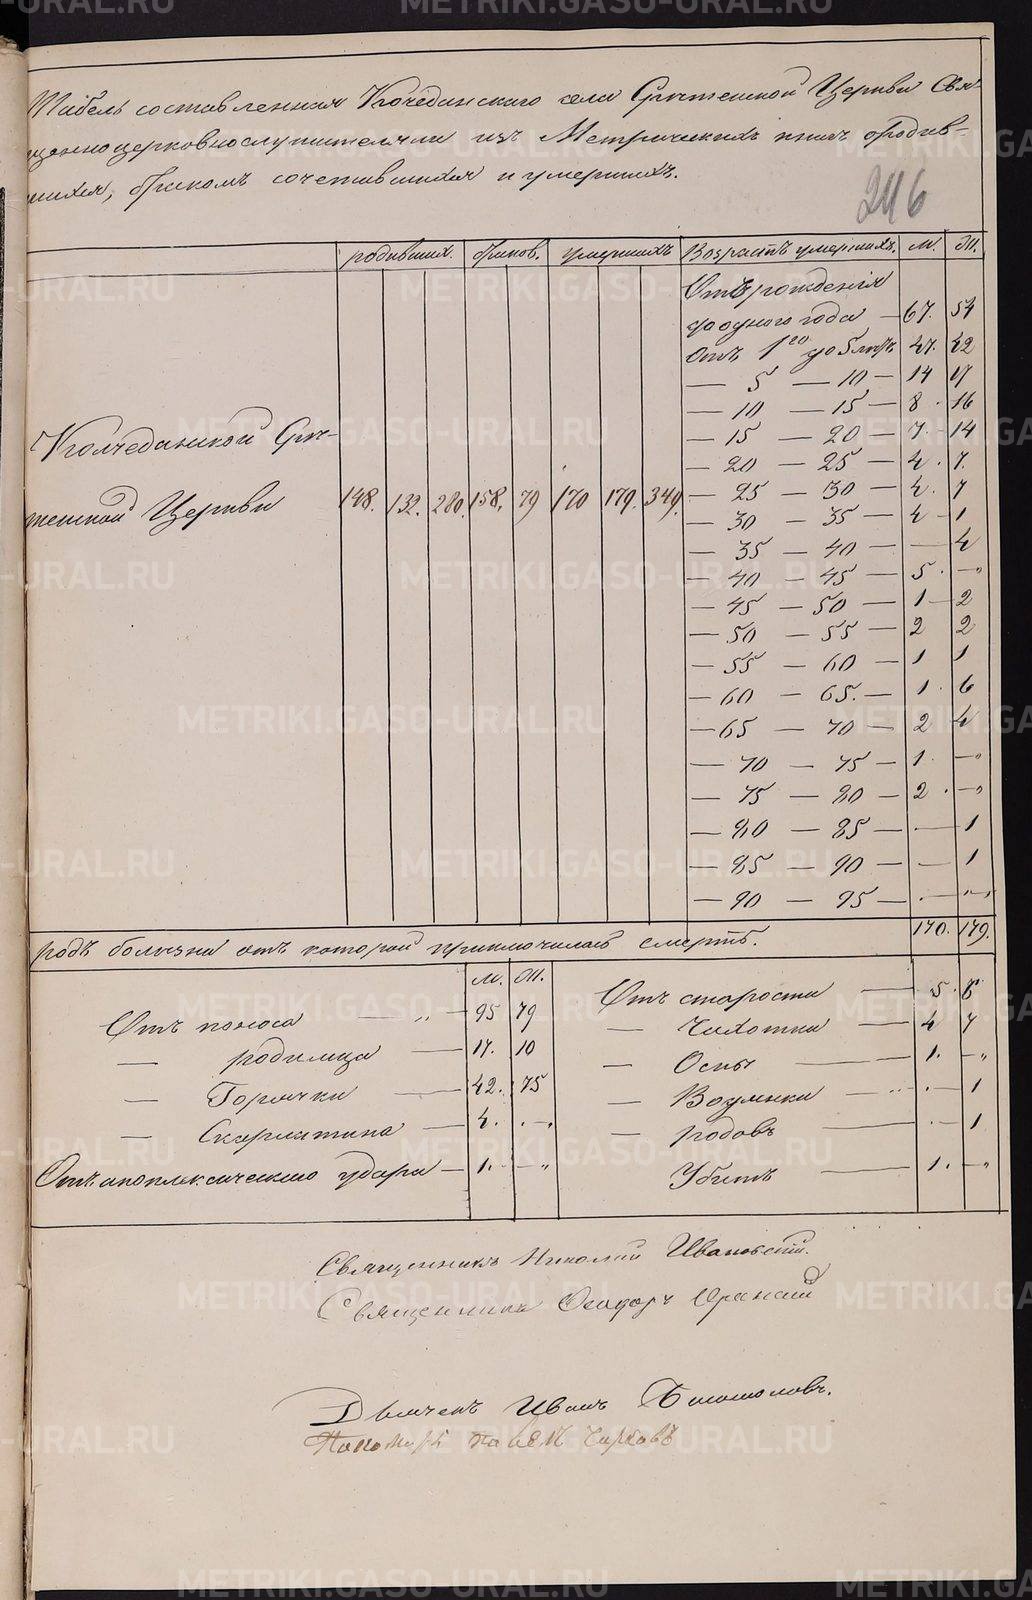 Табель составленная Колчеданскаго села Срѣтенской Церкви Свя-
щенноцерковнослужителями изъ Метрическихъ книгъ о родив-
шихся, бракомъ сочетавшихся и умершихъ.
246
родивших. браков. умершихъ Возрастъ умершихъ. М. Ж.
Отъ рожденія
до одного года — 67. 54
Отъ 1го до 5 лѣтъ 47. 42
— 5 — 10 — 14 17
— 10 — 15 — 8 . 16
— 15 — 20 — 7 . 14
— 20 — 25 — 4 . 7.
— 25 — 30 — 4 . 7
— 30 — 35 — 4 — 1
— 35 — 40 — — 4
— 40 — 45 — 5 . — „
— 45 — 50 — 1 — 2
— 50 — 55 — 2 2
— 55 — 60 — 1 1
— 60 — 65. — 1 . 6
— 65 — 70 — 2 4
— 70 — 75 — 1 . — „
— 75 — 80 — 2 . — „
— 80 — 85 — — 1
— 85 — 90 — — 1
— 90 — 95 — . — „
Колчеданской Срѣ-
тенской Церкви 148. 132. 280. 158. 79 170 179. 349.
170. 179.
родъ болѣзни отъ которой приключилась смерть.
М. Ж.
Отъ поноса — „ — 95 79
— родимца — 17. 10
— Горячки — 42. 75
— Скарлатина — 4. . — „
Отъ апоплексическаго удара — 1. — „
Отъ старости — 5 . 6
— Чахотки — 4 7
— Оспы — 1. — „
— Водянки — . — 1
— родовъ — . — 1
Убитъ — 1. — „
Священникъ Николай Ивановскій.
Священникъ Ѳеодоръ
Дьячекъ Иванъ Богомоловъ.
Пономарь Павелъ Чирковъ
METRIKI.GASO-URAL.RU